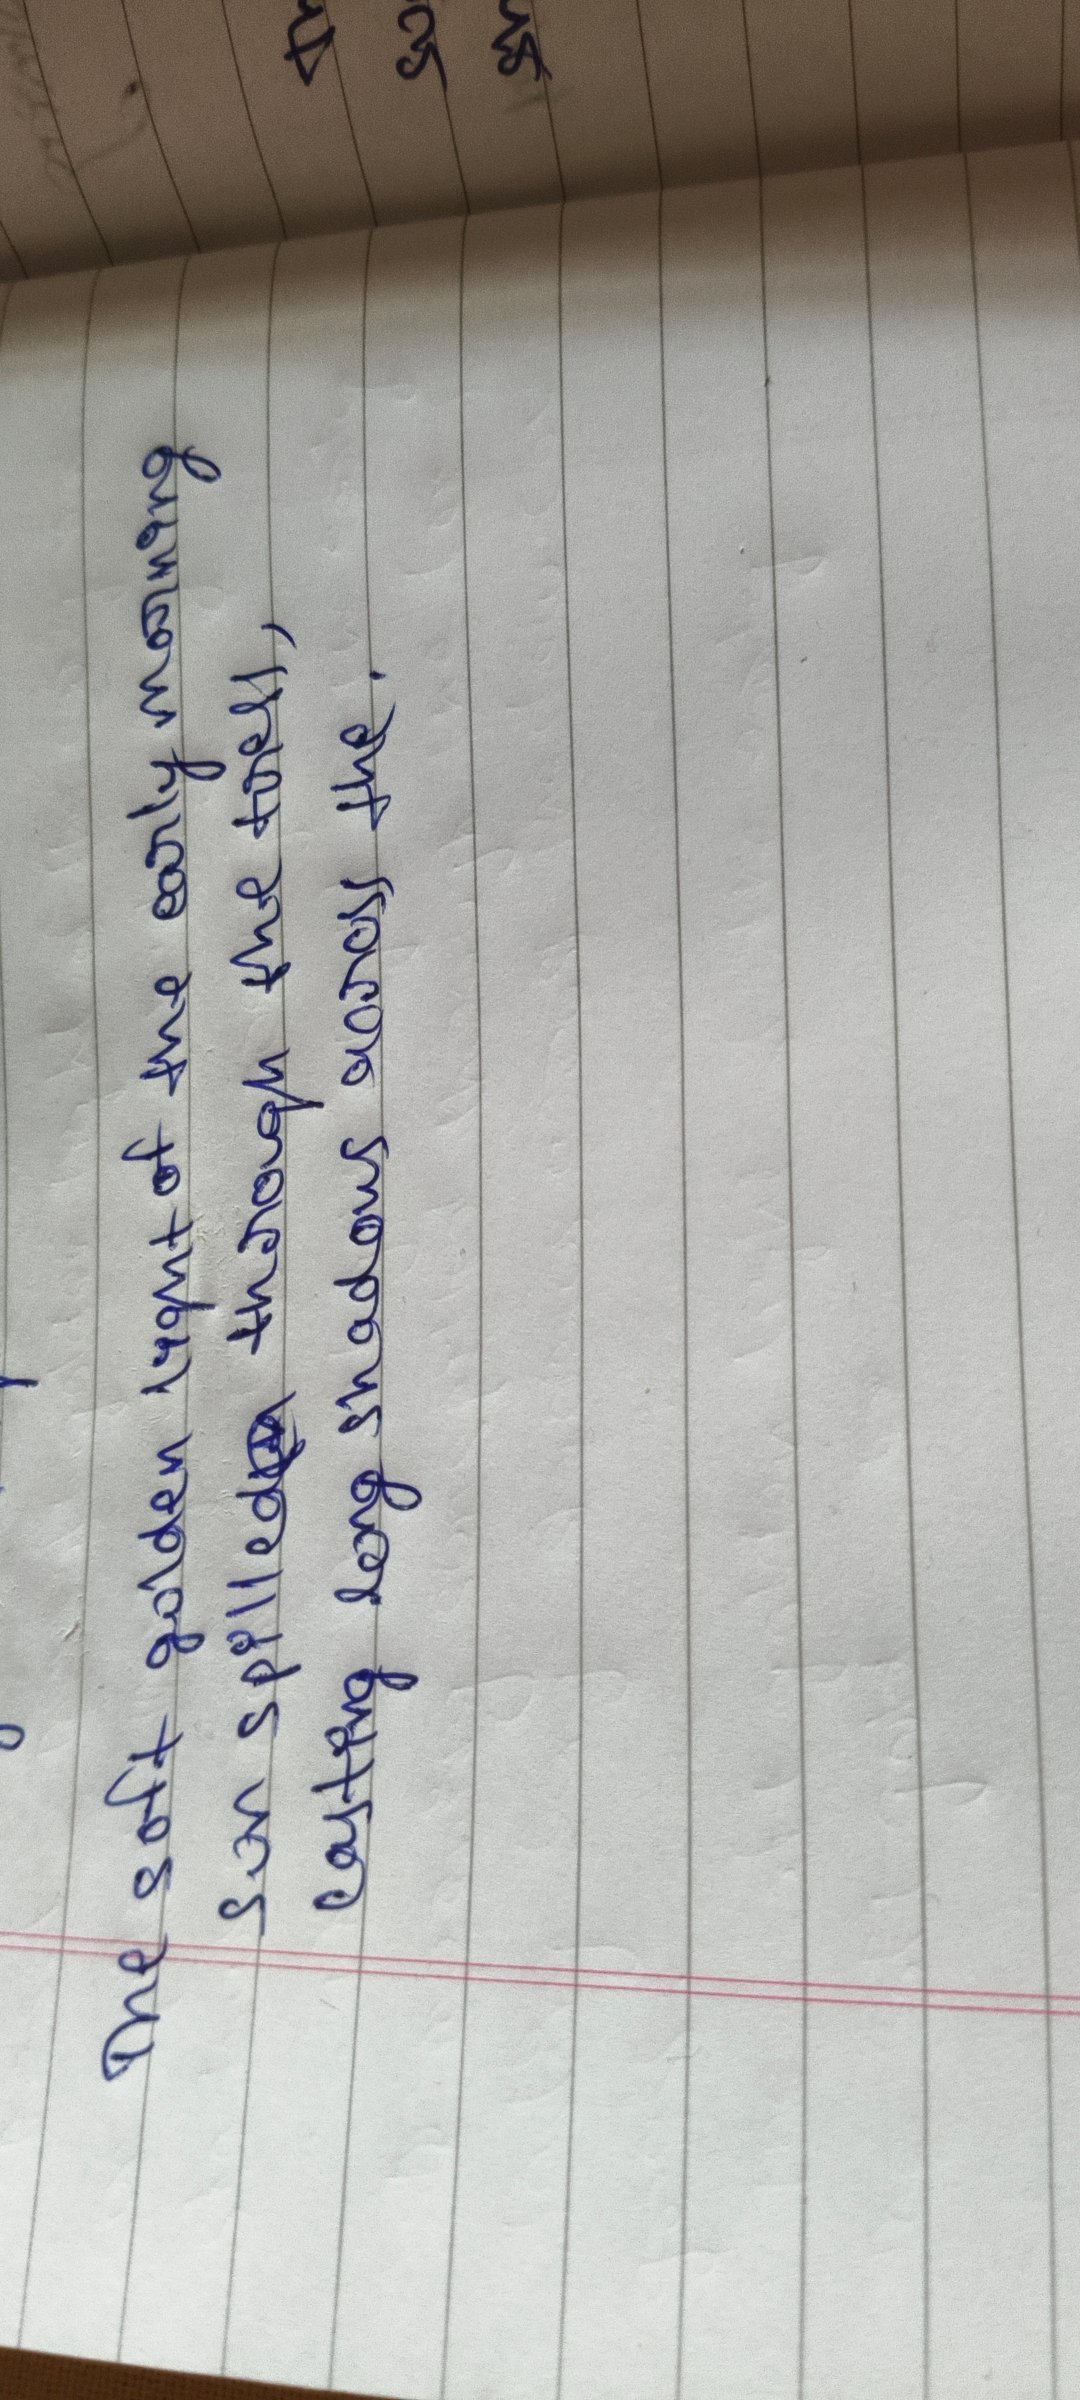 The soft golden light of the early morning
sun spilled through the tall,
casting long shadows across the.